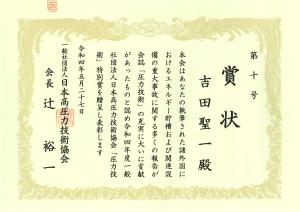 第十号
賞状
吉田聖一殿
本会はあなたの執筆された諸外国に
おけるエネルギー貯槽および関連設
備の重大事故に関する多くの報告が
会誌「圧力技術」の充実に大いに貢献
があったものと認め令和四年度一般
社団法人日本高圧力技術協会「圧力技
術」特別賞を贈呈し表彰します
令和四年五月二十七日
一般社団法人日本高圧力技術協会
会長 辻 裕一